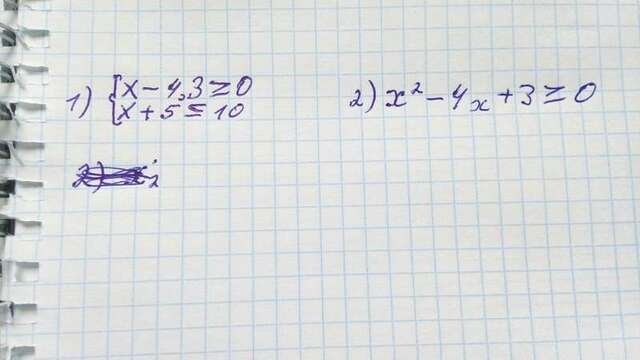 1) { x - 4,3 ≥ 0
x + 5 ≤ 10
2) x² - 4x + 3 ≥ 0